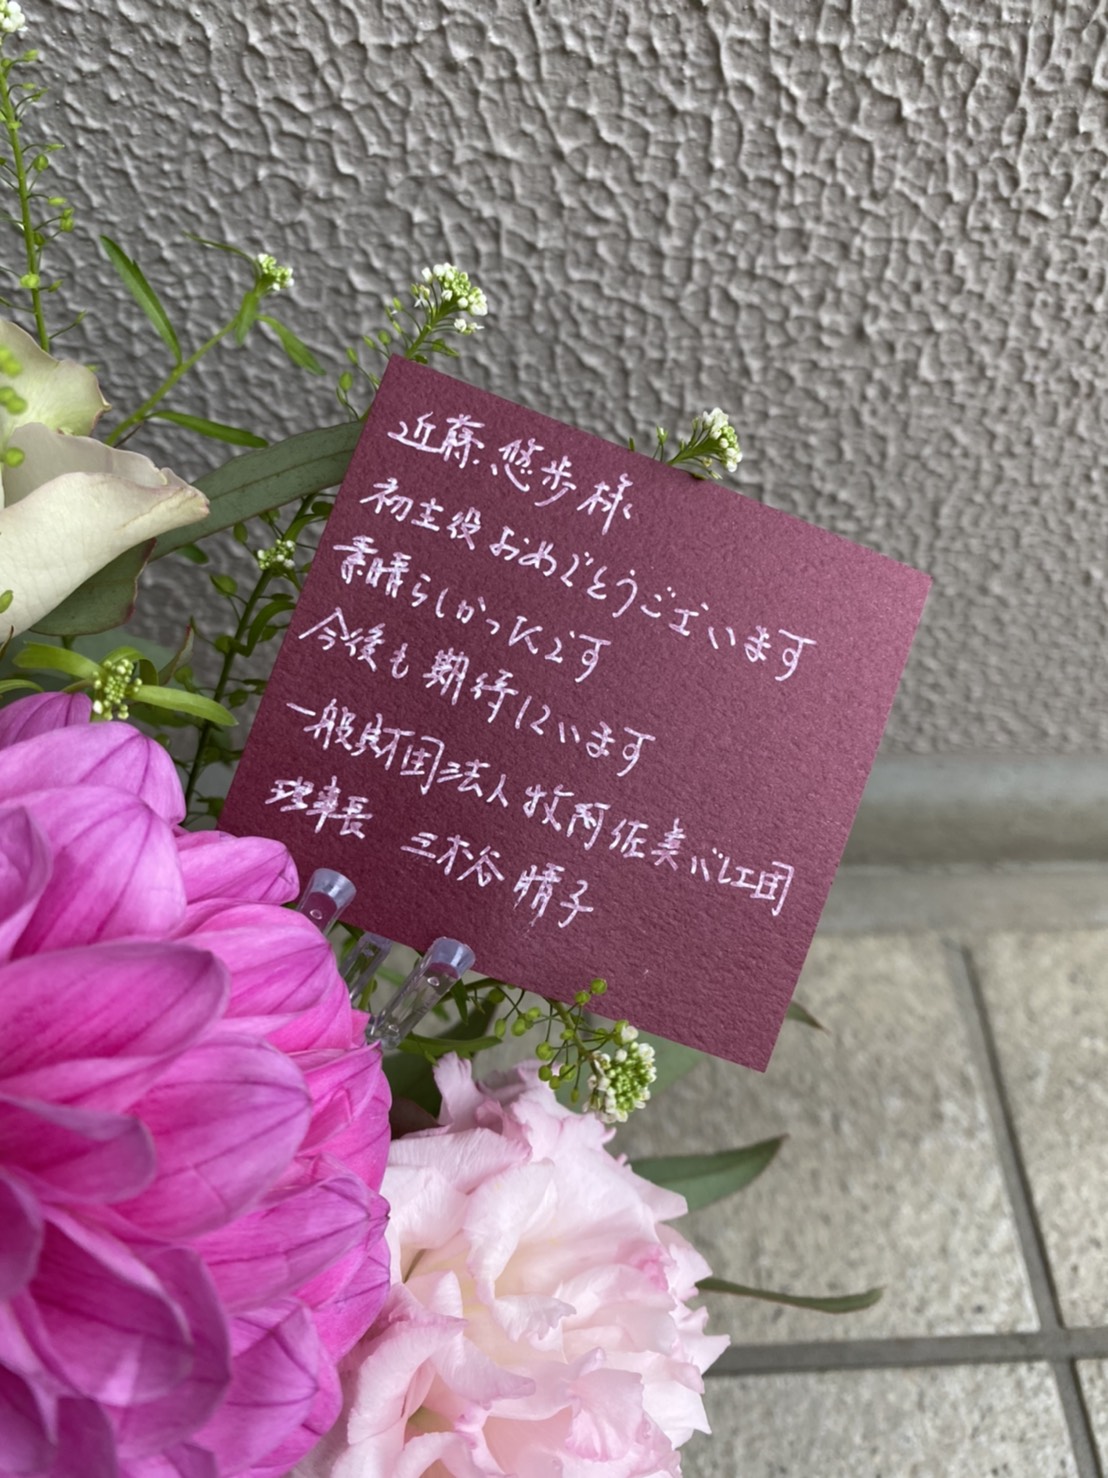 近藤悠歩様
初主役おめでとうございます
素晴らしかったです
今後も期待しています
一般財団法人牧阿佐美バレヱ団
理事長 三木谷晴子